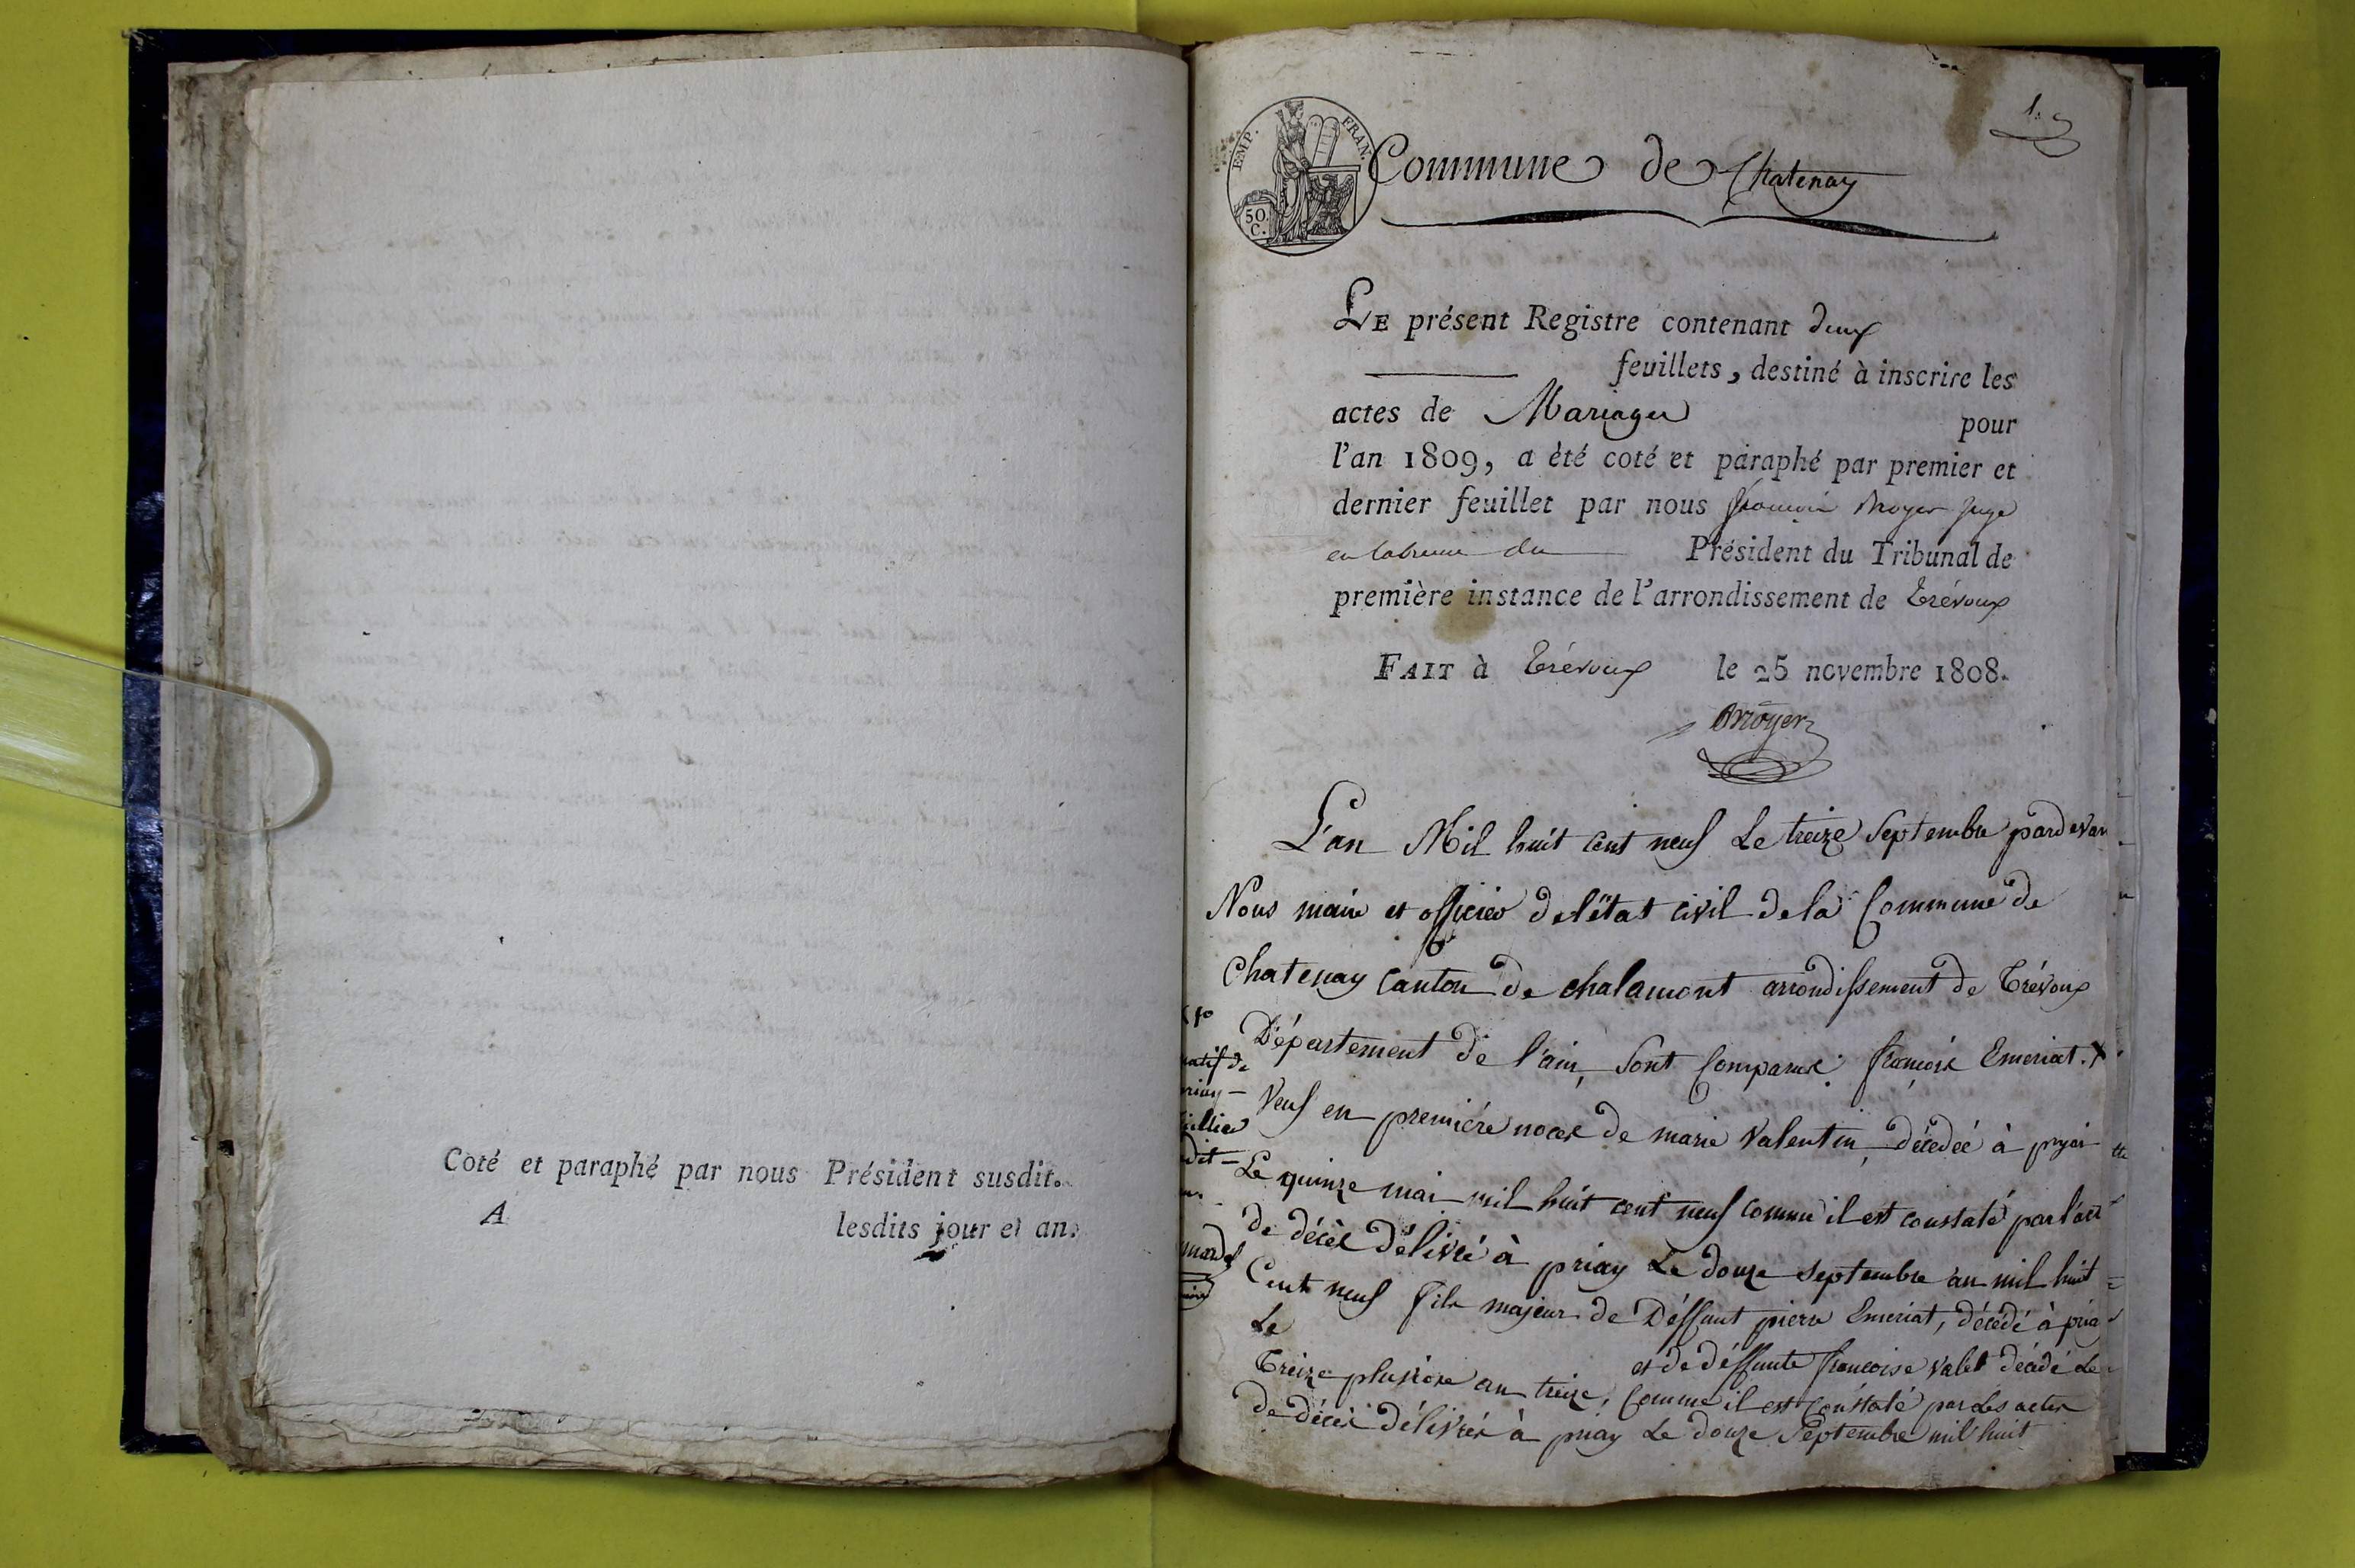 Coté et paraphé par nous Président susdit.
A lesdits jour et an.
1.
EMP. FRAN.
50 C.
Commune de Chatenay
LE présent Registre contenant deux
feuillets, destiné à inscrire les
actes de Mariages pour
l'an 1809, a été coté et paraphé par premier et
dernier feuillet par nous françois juge
en du Président du Tribunal de
première instance de l'arrondissement de Trévoux
FAIT à Trévoux le 25 novembre 1808.
L'an Mil huit cent neuf Le treize Septembre pardevan
Nous maire et officier del'état civil dela Commune de
Chatenay Canton de chalamont arrondissement de Trévoux
Département de l'ain, Sont Comparus françois Emeriat. X
Veuf en première noces de marie Valentin, décedeé à
Le quinze mai mil huit cent neuf comme il est constaté par l'act
de décès délivré à priay Le douze Septembre an mil huit
Cent neuf fils majeur de Déffunt pierre Emeriat, décédé à pria
Le et de déffunte francoise Valet décédé Le
Treize pluviose an treize, Comme il est constaté par Les actes
de décès délivrés à priay Le douze Septembre mil huit
natif de